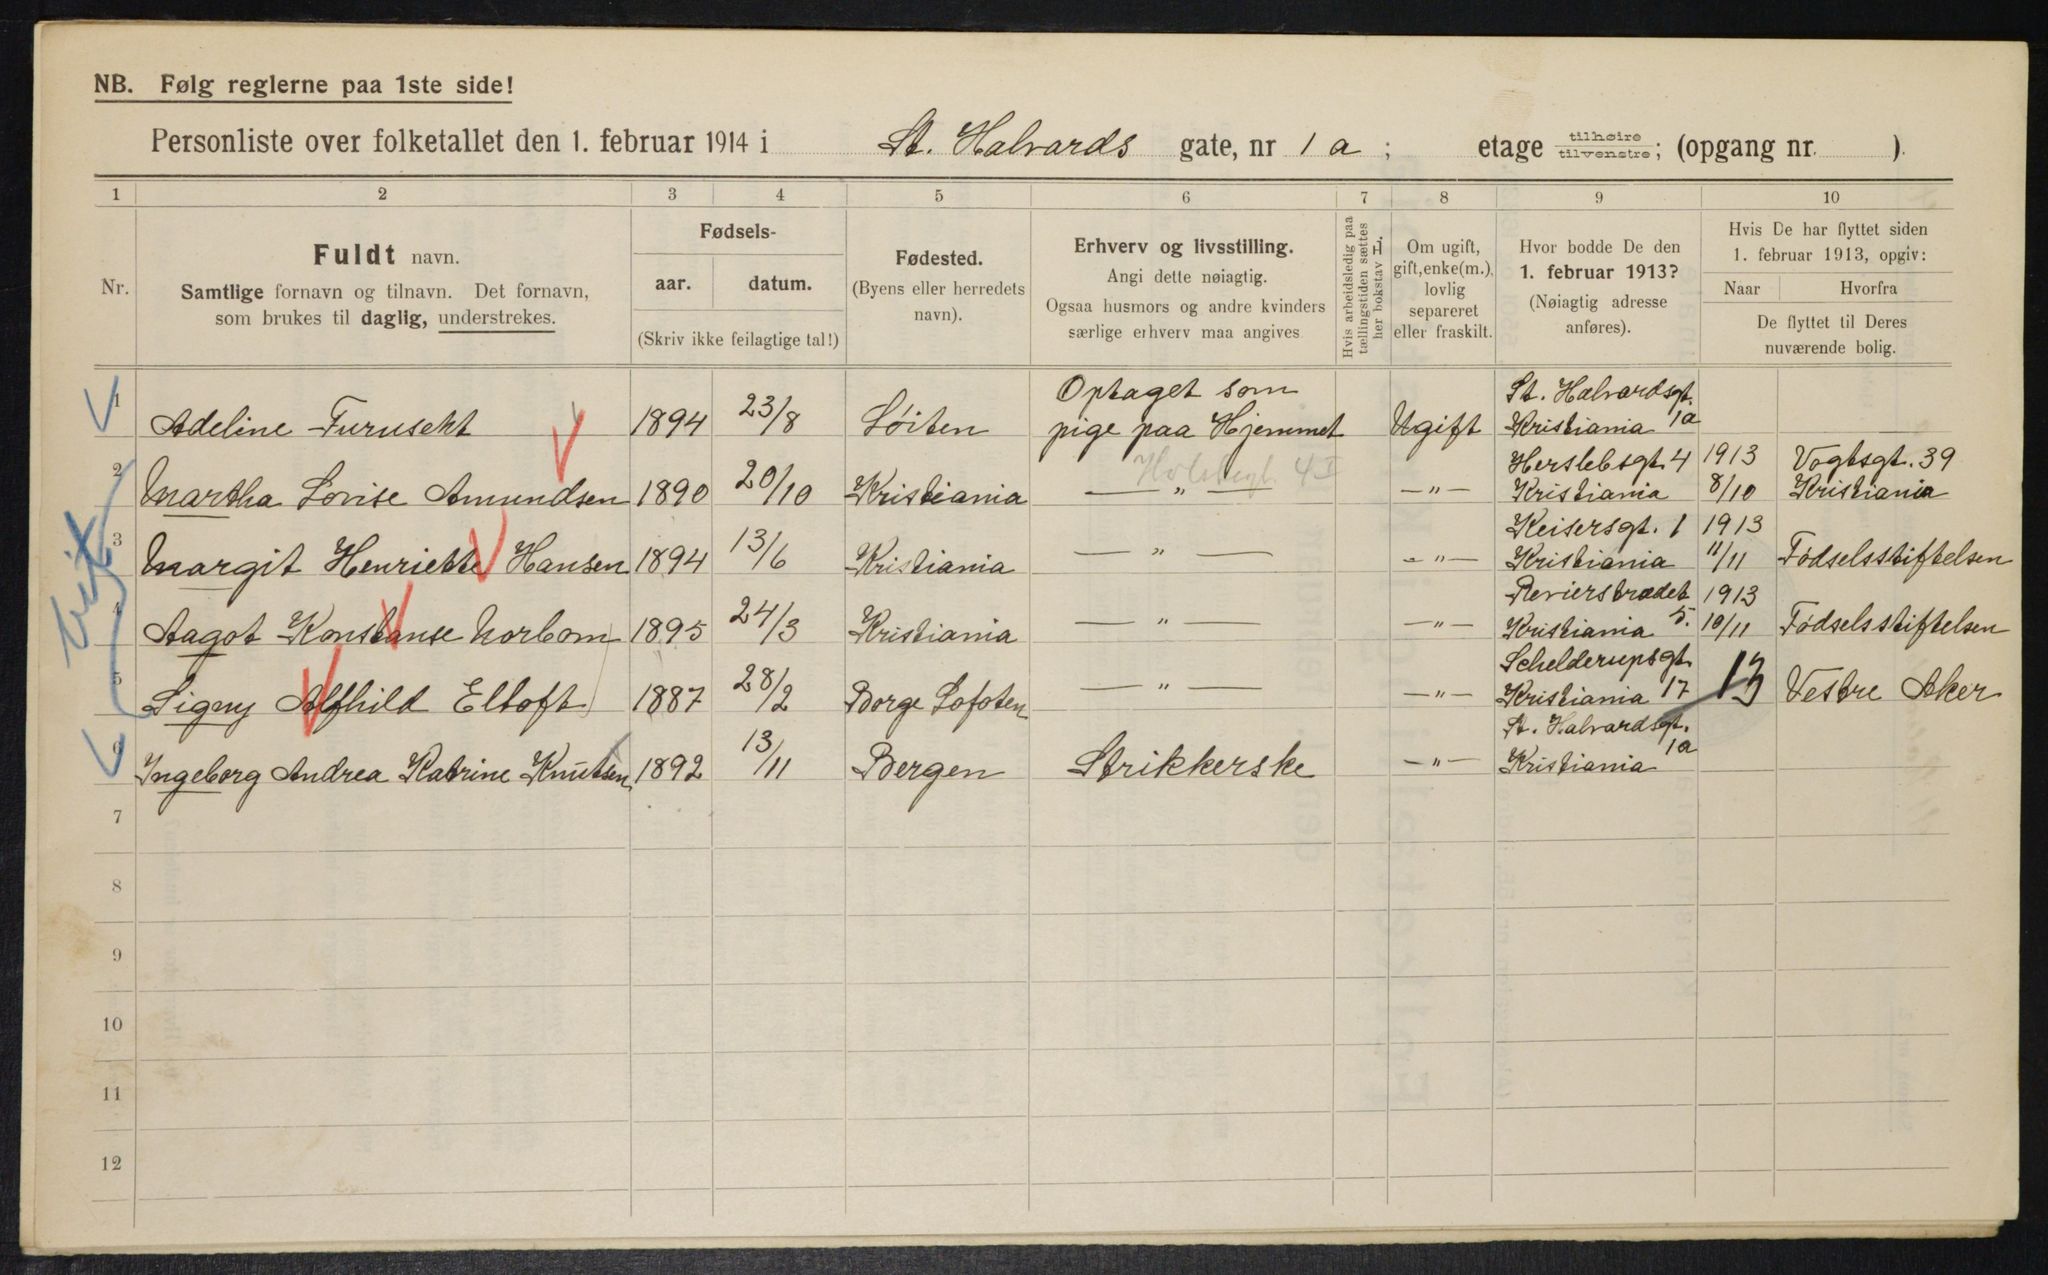 NB. Følg reglerne paa 1ste side!
Personliste over folketallet den 1. februar 1914 i St. Halvards gate, nr 1 a ; etage tilhøire tilvenstre; (opgang nr. ).
1 2 3 4 5 6 7 8 9 10
Nr.
Fuldt navn.
Samtlige fornavn og tilnavn. Det fornavn,
som brukes til daglig, understrekes.
Fødsels-
aar. datum.
(Skriv ikke feilagtige tal!)
Fødested.
(Byens eller herredets
navn).
Erhverv og livsstilling.
Angi dette nøiagtig.
Ogsaa husmors og andre kvinders
særlige erhverv maa angives
Hvis arbeidsledig paa
tællingstiden sættes
her bokstav L.
Om ugift,
gift, enke(m.),
lovlig
separeret
eller fraskilt.
Hvor bodde De den
1. februar 1913?
(Nøiagtig adresse
anføres).
Hvis De har flyttet siden
1. februar 1913, opgiv:
Naar Hvorfra
De flyttet til Deres
nuværende bolig.
1 Adeline Furuseht 1894 23/8 Löiten Optaget som pige paa Hjemmet Ugift St. Halvardsgt. 1a Kristiania
2 Martha Lovise Amundsen 1890 20/10 Kristiania — " — — " — Herslebsgt. 4 Kristiania 1913 8/10 Vogtsgt. 39 Kristiania
3 Margit Henriette Hansen 1894 13/6 Kristiania — " — — " — Keisersgt. 1 Kristiania 1913 11/11 Födselsstiftelsen
4 Aagot Konstanse Norbom 1895 24/3 Kristiania — " — — " — Revierstrædet 5. Kristiania 1913 10/11 Födselsstiftelsen
5 Signy Alfhild Eltoft 1887 28/2 Borge Lofoten — " — — " — Schelderupsgt. 17 Kristiania 13 Vestre Aker
6 Ingeborg Andrea Katrine Knutsen 1892 13/11 Bergen Strikkerske — " — St. Halvardsgt. 1a Kristiania
7
8
9
10
11
12